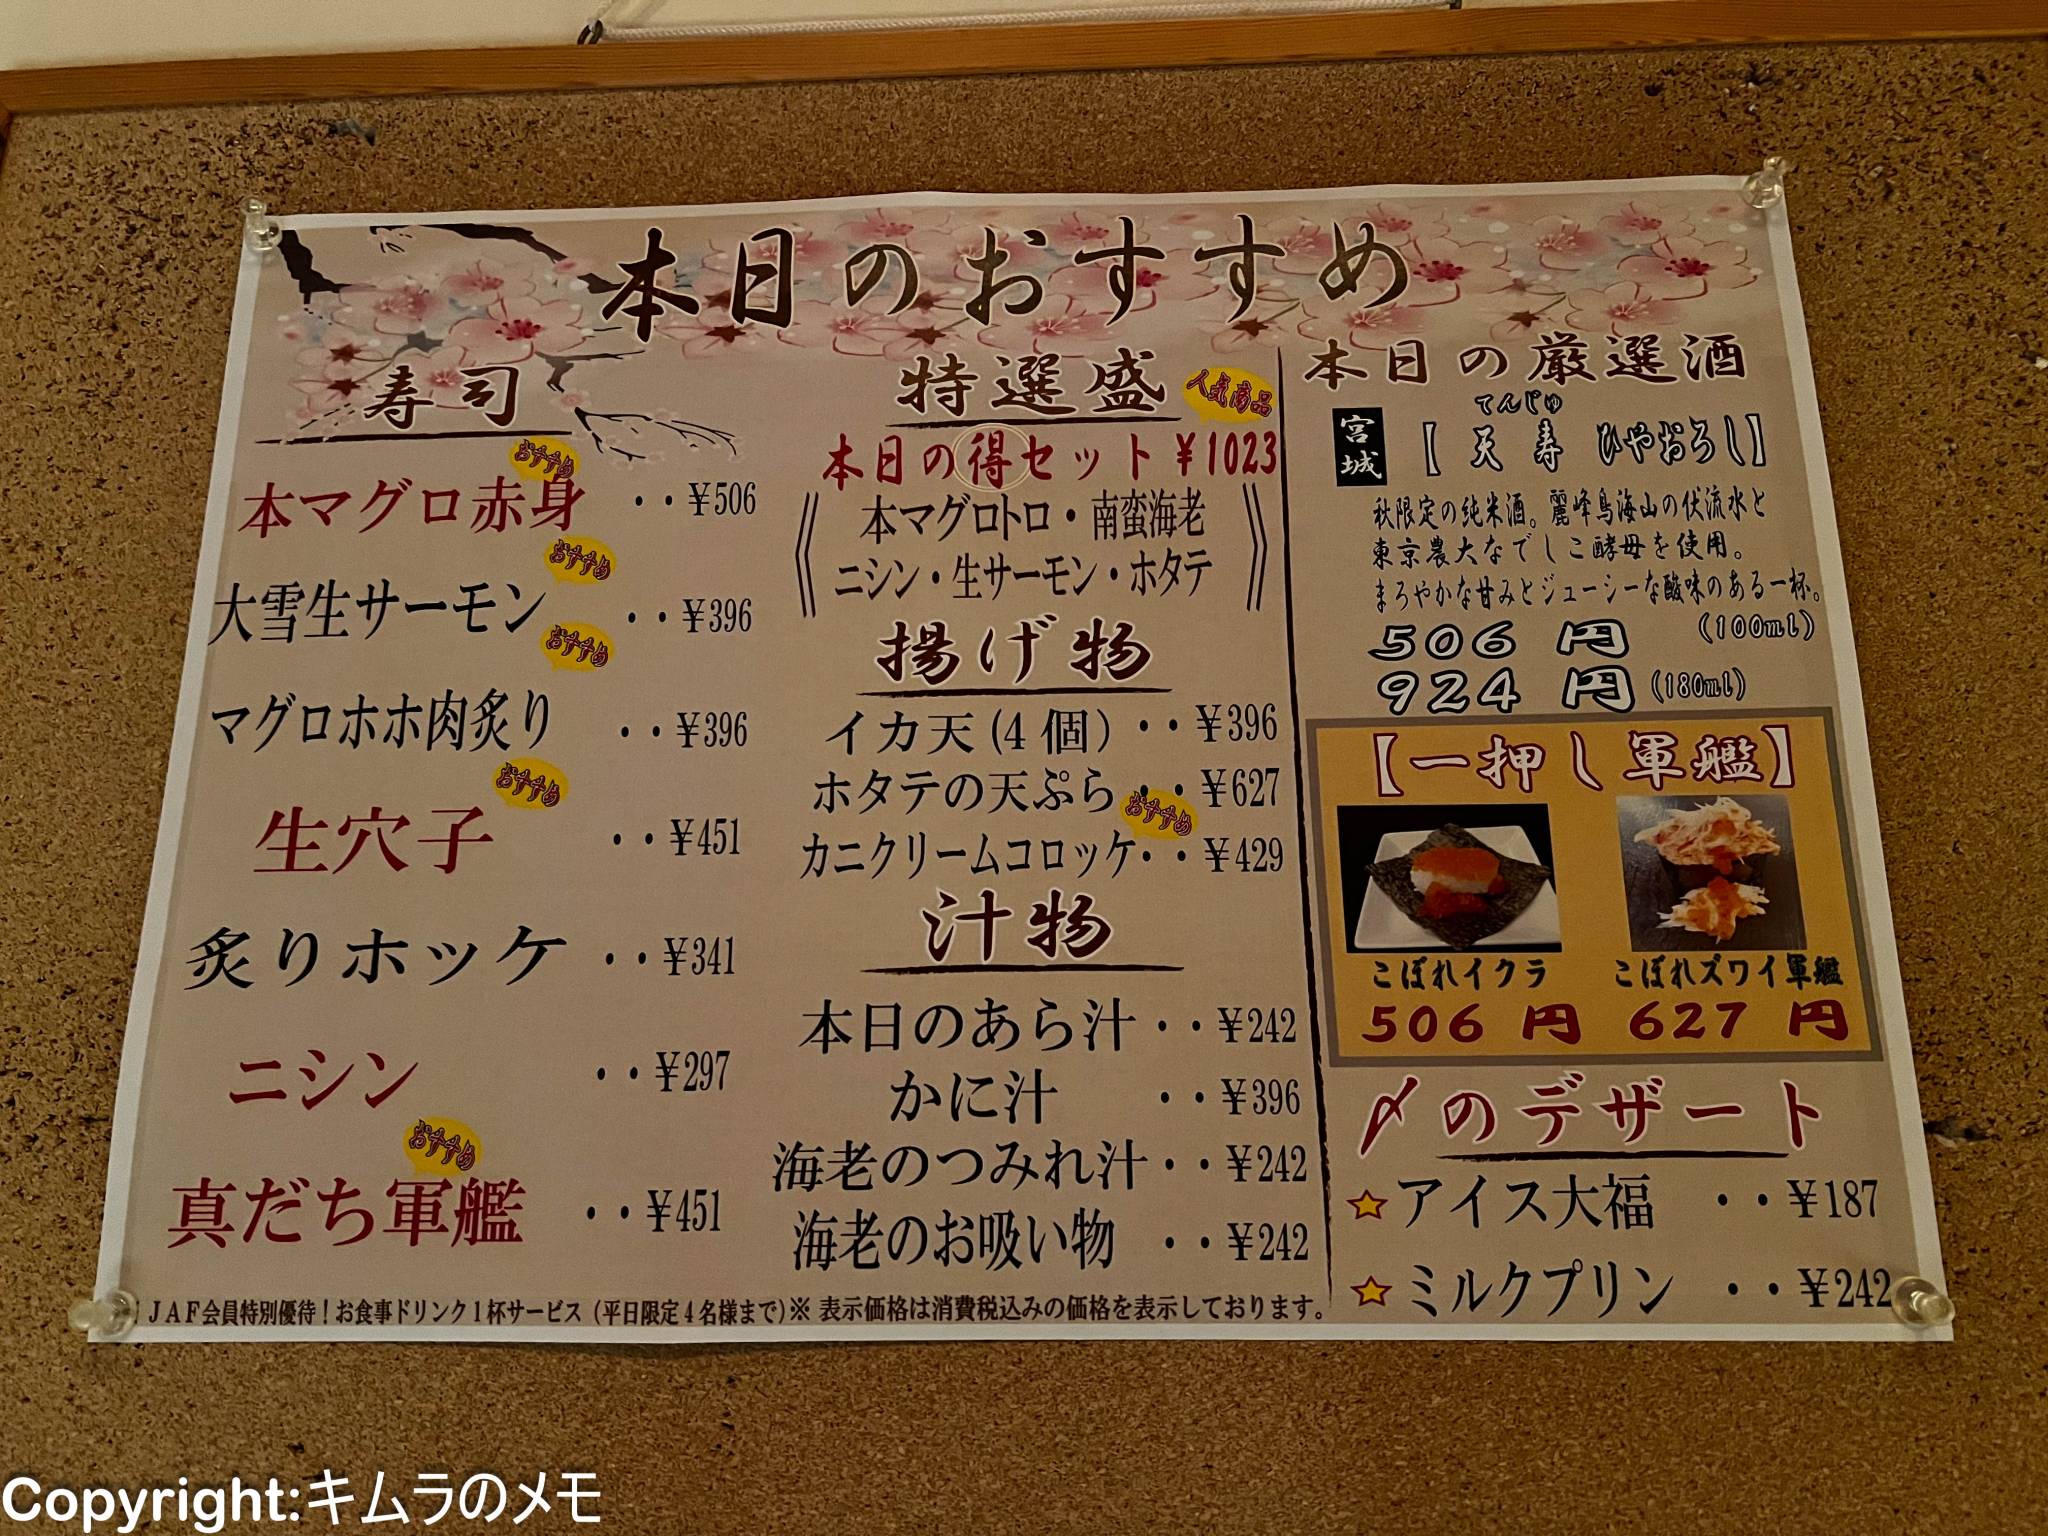 本日のおすすめ
寿司
おすすめ
本マグロ赤身 ・・¥506
おすすめ
大雪生サーモン ・・¥396
おすすめ
マグロホホ肉炙り ・・¥396
おすすめ
生穴子 ・・¥451
炙りホッケ ・・¥341
ニシン ・・¥297
おすすめ
真だち軍艦 ・・¥451
特選盛
人気商品
本日の得セット ¥1023
《本マグロトロ・南蛮海老
ニシン・生サーモン・ホタテ》
揚げ物
イカ天(4個)・・¥396
ホタテの天ぷら・・¥627
おすすめ
カニクリームコロッケ・・¥429
汁物
本日のあら汁・・¥242
かに汁 ・・¥396
海老のつみれ汁・・¥242
海老のお吸い物 ・・¥242
本日の厳選酒
宮城
てんじゅ
【天寿 ひやおろし】
秋限定の純米酒。麗峰鳥海山の伏流水と
東京農大なでしこ酵母を使用。
まろやかな甘みとジューシーな酸味のある一杯。
506円 (100ml)
924円 (180ml)
【一押し軍艦】
こぼれイクラ こぼれズワイ軍艦
506円 627円
〆のデザート
アイス大福 ・・¥187
ミルクプリン ・・¥242
JAF会員特別優待！お食事ドリンク1杯サービス（平日限定4名様まで）※表示価格は消費税込みの価格を表示しております。
Copyright:キムラのメモ